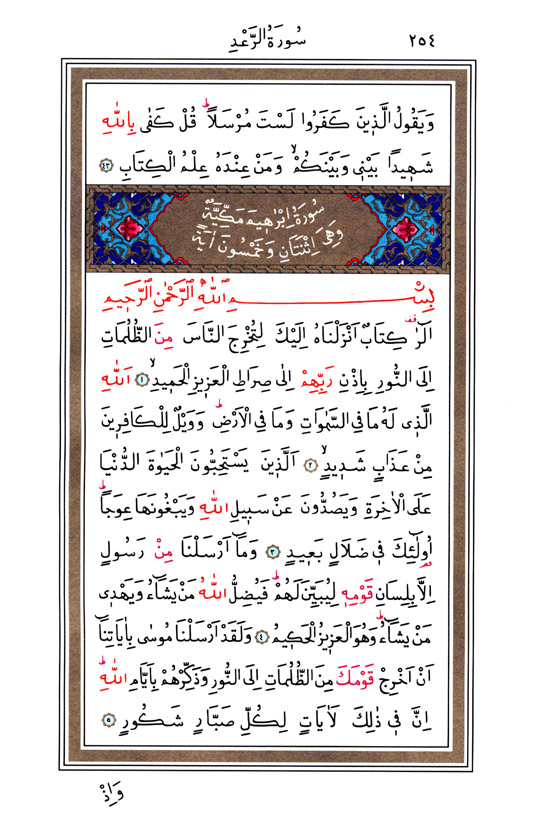 سُورَةُ الرَّعْدِ ٢٥٤
وَيَقُولُ الَّذ۪ينَ كَفَرُوا لَسْتَ مُرْسَلاًۜ قُلْ كَفٰى بِاللّٰهِ
شَه۪يداً بَيْن۪ي وَبَيْنَكُمْۙ وَمَنْ عِنْدَهُ عِلْمُ الْكِتَابِ ﴿٤٣﴾
سُورَةُ اِبْرٰه۪يمَ مَكِّيَّةٌ
وَهِيَ اِثْنَتَانِ وَخَمْسُونَ اٰيَةً
بِسْمِ اللّٰهِ الرَّحْمٰنِ الرَّح۪يمِ
الٓرٰ۠ كِتَابٌ اَنْزَلْنَاهُ اِلَيْكَ لِتُخْرِجَ النَّاسَ مِنَ الظُّلُمَاتِ
اِلَى النُّورِ بِاِذْنِ رَبِّهِمْ اِلٰى صِرَاطِ الْعَز۪يزِ الْحَم۪يدِۙ ﴿١﴾ اَللّٰهِ
الَّذ۪ي لَهُ مَا فِي السَّمٰوَاتِ وَمَا فِي الْاَرْضِۜ وَوَيْلٌ لِلْكَافِر۪ينَ
مِنْ عَذَابٍ شَد۪يدٍۙ ﴿٢﴾ اَلَّذ۪ينَ يَسْتَحِبُّونَ الْحَيٰوةَ الدُّنْيَا
عَلَى الْاٰخِرَةِ وَيَصُدُّونَ عَنْ سَب۪يلِ اللّٰهِ وَيَبْغُونَهَا عِوَجاًۜ
اُو۬لٰٓئِكَ ف۪ي ضَلَالٍ بَع۪يدٍ ﴿٣﴾ وَمَٓا اَرْسَلْنَا مِنْ رَسُولٍ
اِلَّا بِلِسَانِ قَوْمِه۪ لِيُبَيِّنَ لَهُمْۜ فَيُضِلُّ اللّٰهُ مَنْ يَشَٓاءُ وَيَهْد۪ي
مَنْ يَشَٓاءُۜ وَهُوَ الْعَز۪يزُ الْحَك۪يمُ ﴿٤﴾ وَلَقَدْ اَرْسَلْنَا مُوسٰى بِاٰيَاتِنَٓا
اَنْ اَخْرِجْ قَوْمَكَ مِنَ الظُّلُمَاتِ اِلَى النُّورِ وَذَكِّرْهُمْ بِاَيَّامِ اللّٰهِۜ
اِنَّ ف۪ي ذٰلِكَ لَاٰيَاتٍ لِكُلِّ صَبَّارٍ شَكُورٍ ﴿٥﴾
وَاِذْ